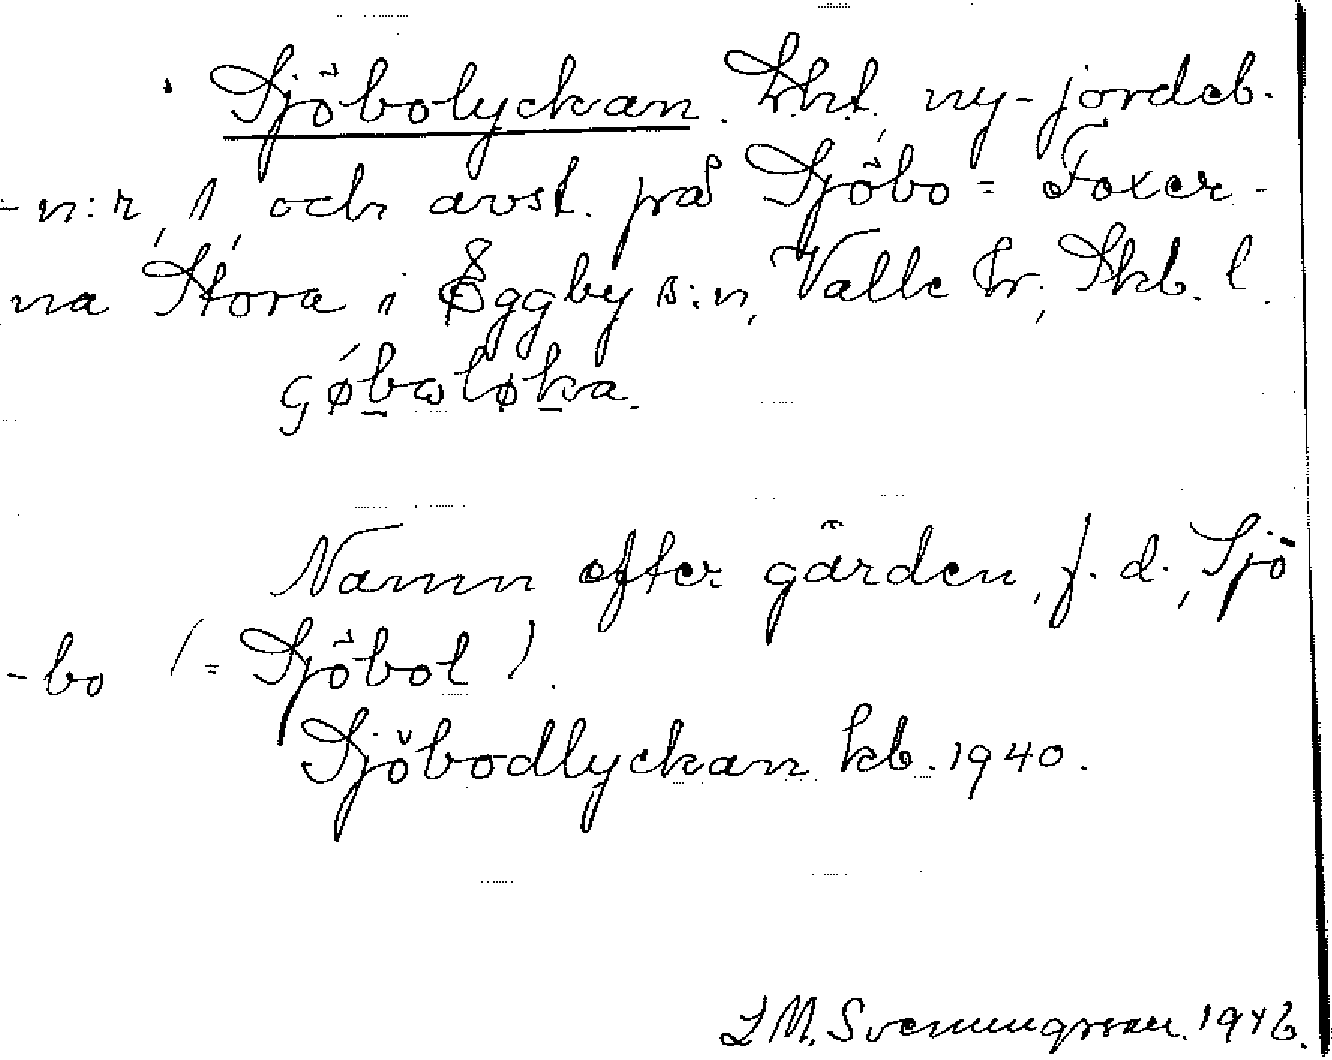 Sjöbolyckan. Lht, ny-jordeb.
-n:r, 1, och avst. på Sjöbo = Foxer-
na Stora i Eggby s:n, Valle hr, Skb. l.
Namn efter gården, f. d., Sjö
-bo (= Sjöbol).
Sjöbodlyckan kb. 1940.
L M. Svenungsson. 1946.